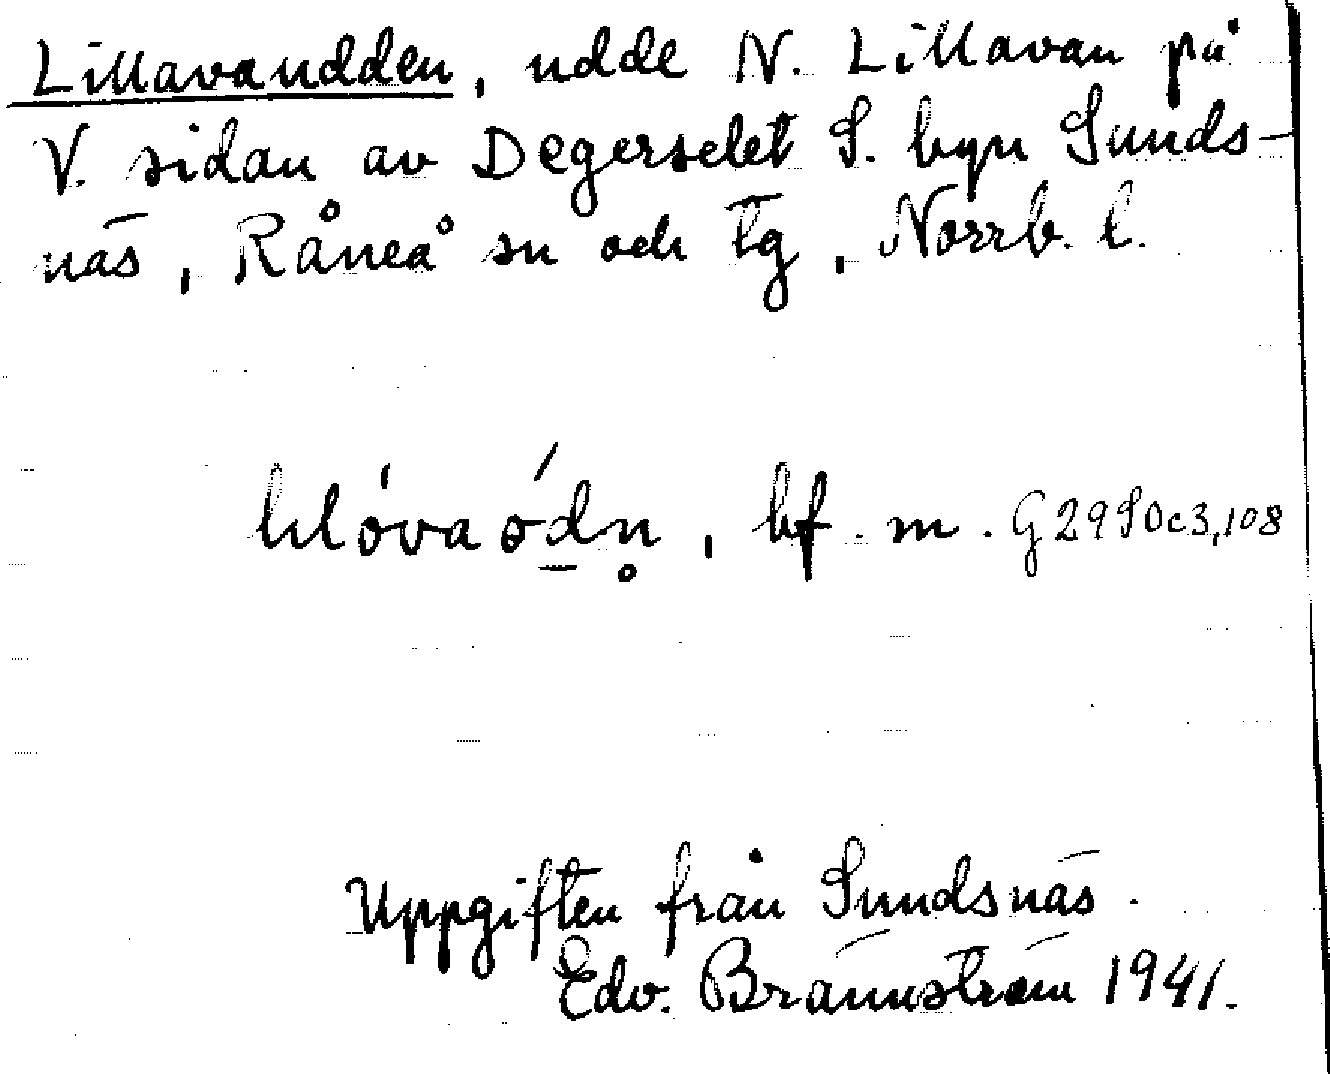 Lillavaudden, udde N. Lillavan på
V. sidan av Degerselet S. byn Sunds-
näs, Råneå sn och tg, Norrb. l.
bf. m. G29S0c3,108
Uppgiften från Sundsnäs.
Edv. Brännström 1941.